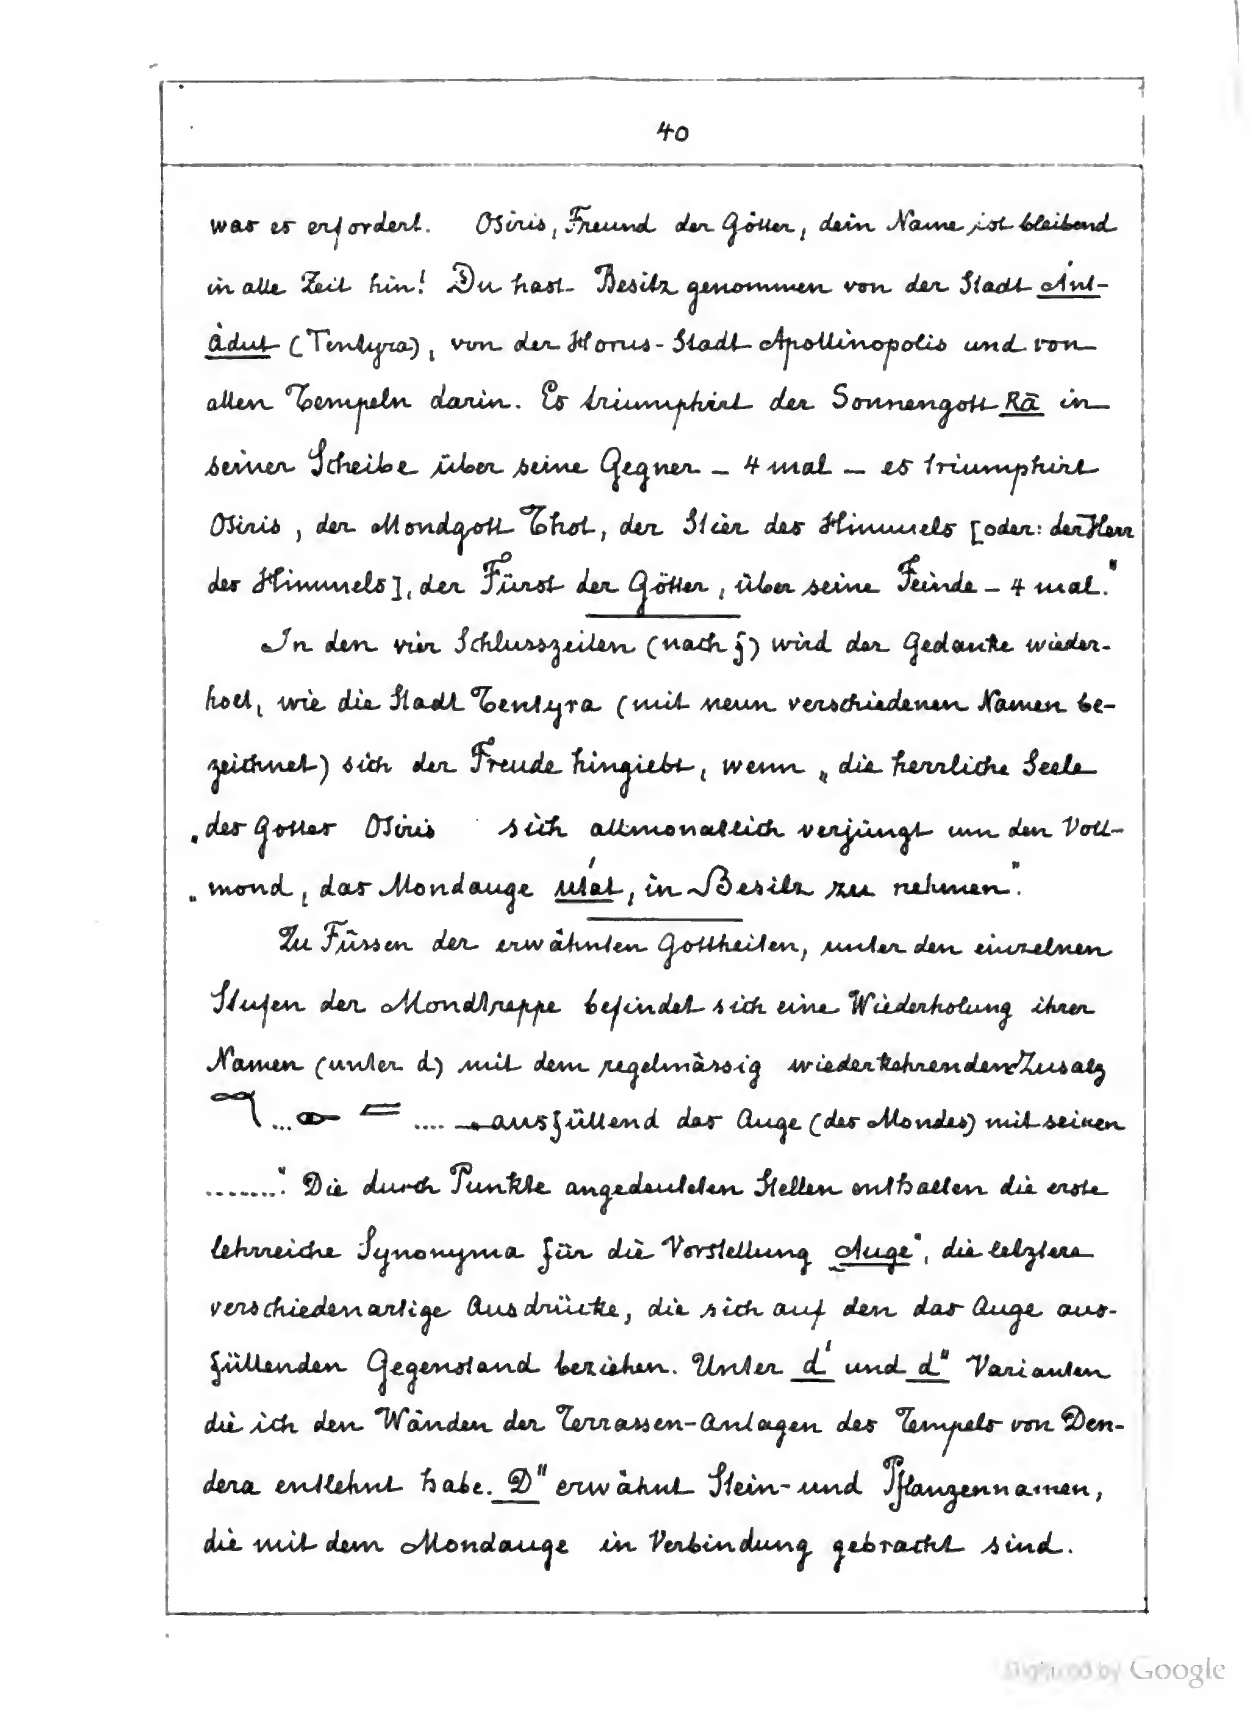 40
was es erfordert. Osiris, Freund der Götter, dein Name ist bleibend
in alle Zeit hin! Du hast Besitz genommen von der Stadt Ȧnt-
ȧdut (Tentyra), von der Horus-Stadt Apollinopolis und von
allen Tempeln darin. Es triumphirt der Sonnengott Rā in
seiner Scheibe über seine Gegner – 4 mal – es triumphirt
Osiris, der Mondgott Thot, der Stier des Himmels [oder: der Herr
des Himmels], der Fürst der Götter, über seine Feinde – 4 mal."
In den vier Schlusszeilen (nach f) wird der Gedanke wieder-
holt, wie die Stadt Tentyra (mit neun verschiedenen Namen be-
zeichnet) sich der Freude hingiebt, wenn „die herrliche Seele
„des Gottes Osiris sich allmonatlich verjüngt um den Voll-
„mond, das Mondauge uťat, in Besitz zu nehmen".
Zu Füssen der erwähnten Gottheiten, unter den einzelnen
Stufen der Mondtreppe befindet sich eine Wiederholung ihrer
Namen (unter d) mit dem regelmässig wiederkehrenden Zusatz
... .... „ausfüllend das Auge (des Mondes) mit seinen
........". Die durch Punkte angedeuteten Stellen enthalten die erste
lehrreiche Synonyma für die Vorstellung „Auge", die letztere
verschiedenartige Ausdrücke, die sich auf den das Auge aus-
füllenden Gegenstand beziehen. Unter d' und d" Varianten
die ich den Wänden der Terrassen-Anlagen des Tempels von Den-
dera entlehnt habe. D" erwähnt Stein- und Pflanzennamen,
die mit dem Mondauge in Verbindung gebracht sind.
Digitized by Google